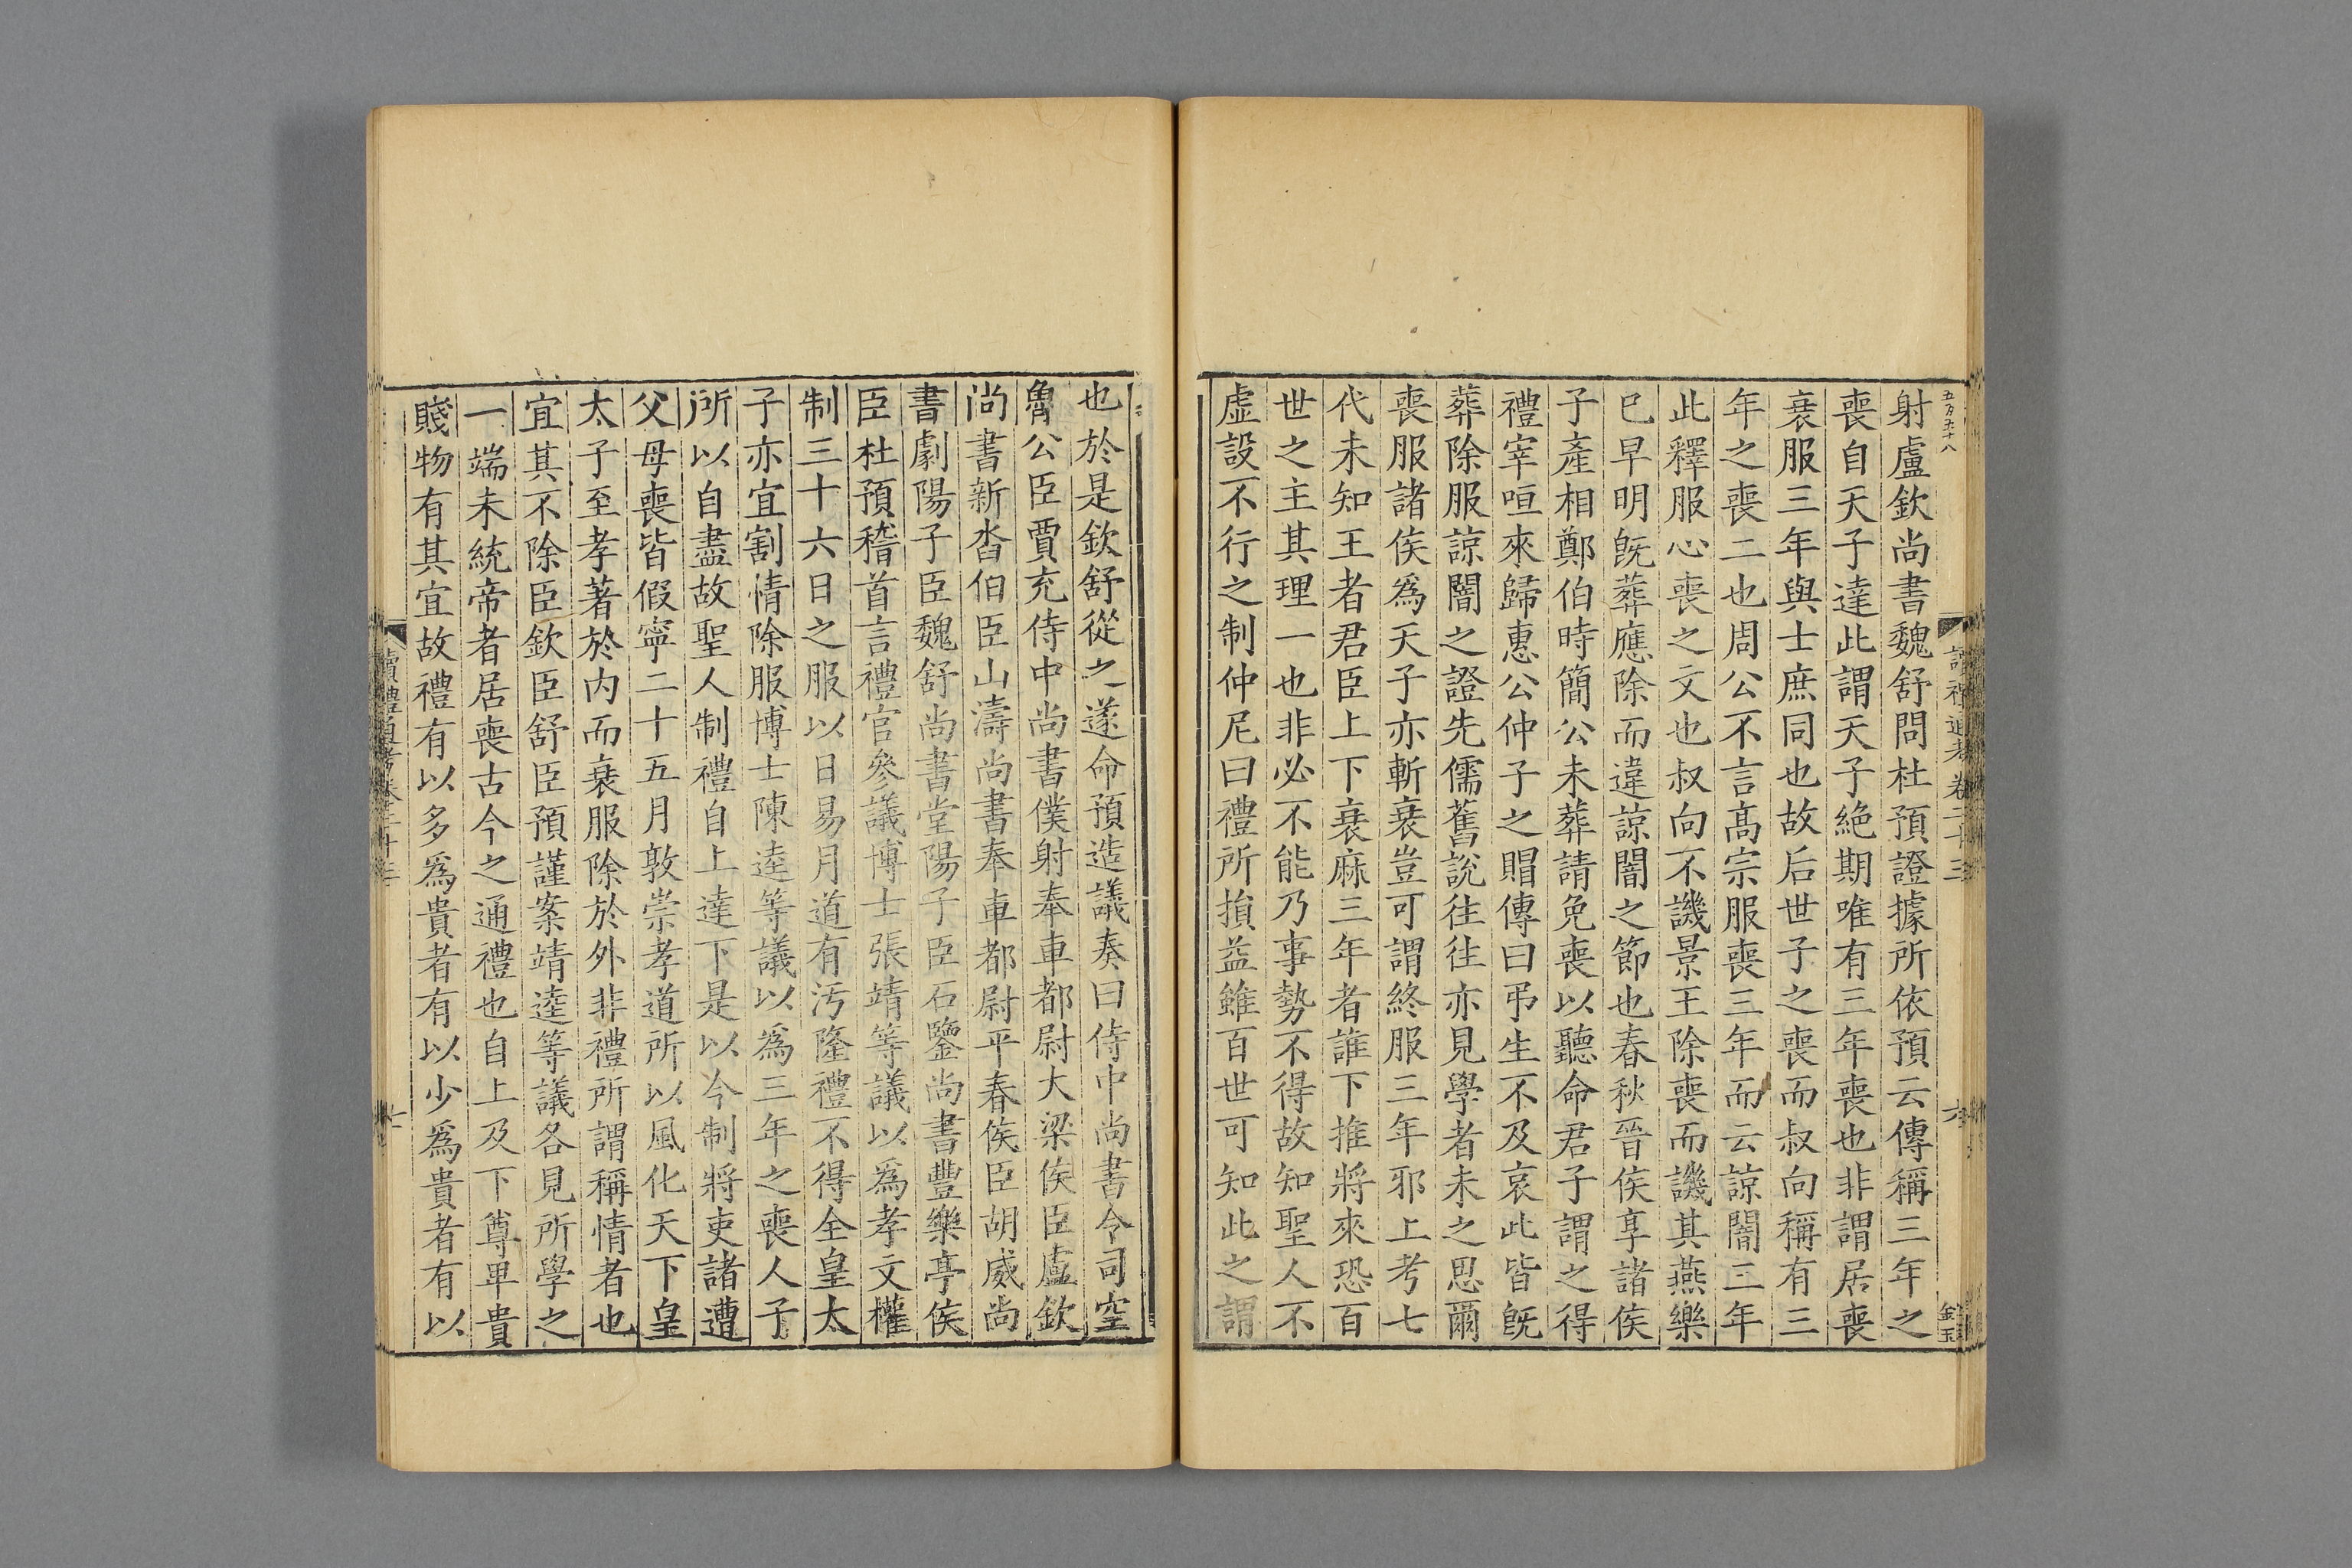 五百五十八
讀禮通考卷二十三
六
金玉
射盧欽尚書魏舒問杜預證據所依預云傳稱三年之
喪自天子達此謂天子絶期唯有三年喪也非謂居喪
衰服三年與士庶同也故后世子之喪而叔向稱有三
年之喪二也周公不言髙宗服喪三年而云諒闇三年
此釋服心喪之文也叔向不譏景王除喪而譏其燕樂
已早明旣葬應除而違諒闇之節也春秋晉侯享諸侯
子產相鄭伯時簡公未葬請免喪以聽命君子謂之得
禮宰咺來歸惠公仲子之賵傳曰弔生不及哀此皆旣
葬除服諒闇之證先儒舊說往往亦見學者未之思爾
喪服諸侯爲天子亦斬衰豈可謂終服三年邪上考七
代未知王者君臣上下衰麻三年者誰下推將來恐百
世之主其理一也非必不能乃事勢不得故知聖人不
虛設不行之制仲尼曰禮所損益雖百世可知此之謂
也於是欽舒從之遂命預造議奏曰侍中尚書令司空
魯公臣賈充侍中尚書僕射奉車都尉大梁侯臣盧欽
尚書新沓伯臣山濤尚書奉車都尉平春侯臣胡威尚
書劇陽子臣魏舒尚書堂陽子臣石鑒尚書豐樂亭侯
臣杜預稽首言禮官參議博士張靖等議以爲孝文權
制三十六日之服以日易月道有汚隆禮不得全皇太
子亦宜割情除服博士陳逵等議以爲三年之喪人子
所以自盡故聖人制禮自上達下是以今制將吏諸遭
父母喪皆假寧二十五月敦崇孝道所以風化天下皇
太子至孝著於内而衰服除於外非禮所謂稱情者也
宜其不除臣欽臣舒臣預謹案靖逵等議各見所學之
一端未統帝者居喪古今之通禮也自上及下尊卑貴
賤物有其宜故禮有以多爲貴者有以少爲貴者有以
讀禮通考卷二十三